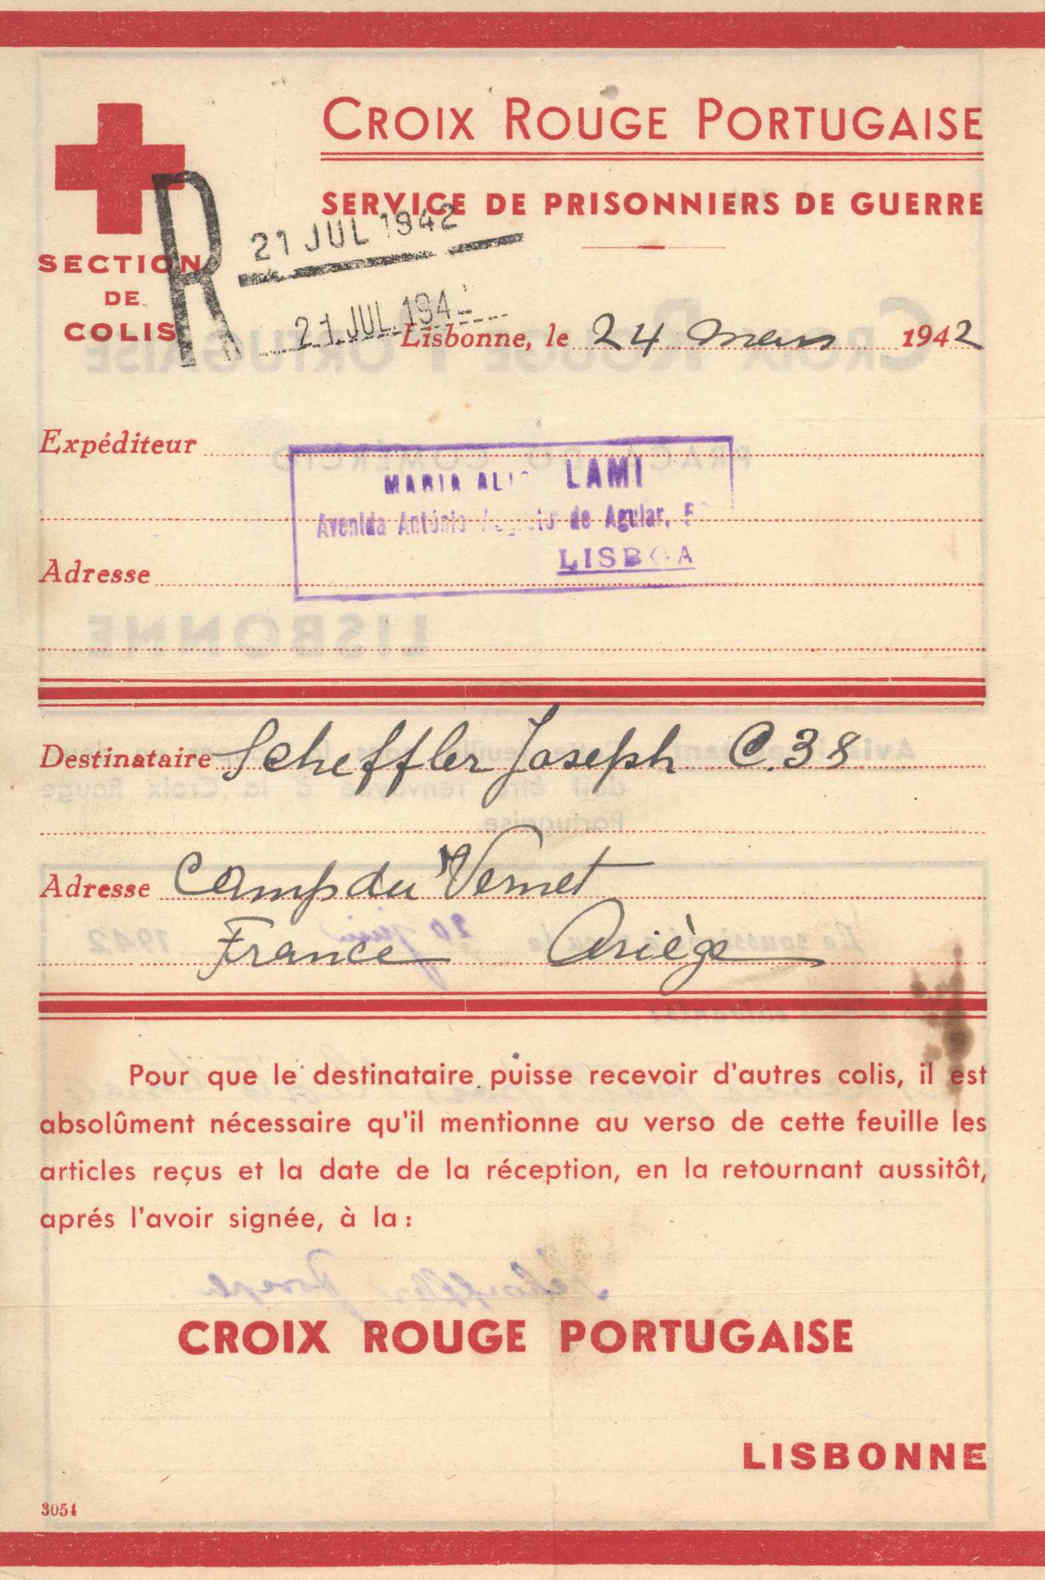 CROIX ROUGE PORTUGAISE
SERVICE DE PRISONNIERS DE GUERRE
SECTION
DE
COLIS
R
21 JUL 1942
21 JUL 194
Lisbonne, le 24 mars 1942
Expéditeur
MARIA LAMI
Avenida António de Aguiar,
LISBOA
Adresse
Destinataire Scheffler Joseph C.38
Adresse Camp du Vernet
France Ariège
Pour que le destinataire puisse recevoir d'autres colis, il est
absolûment nécessaire qu'il mentionne au verso de cette feuille les
articles reçus et la date de la réception, en la retournant aussitôt,
aprés l'avoir signée, à la:
CROIX ROUGE PORTUGAISE
LISBONNE
3054